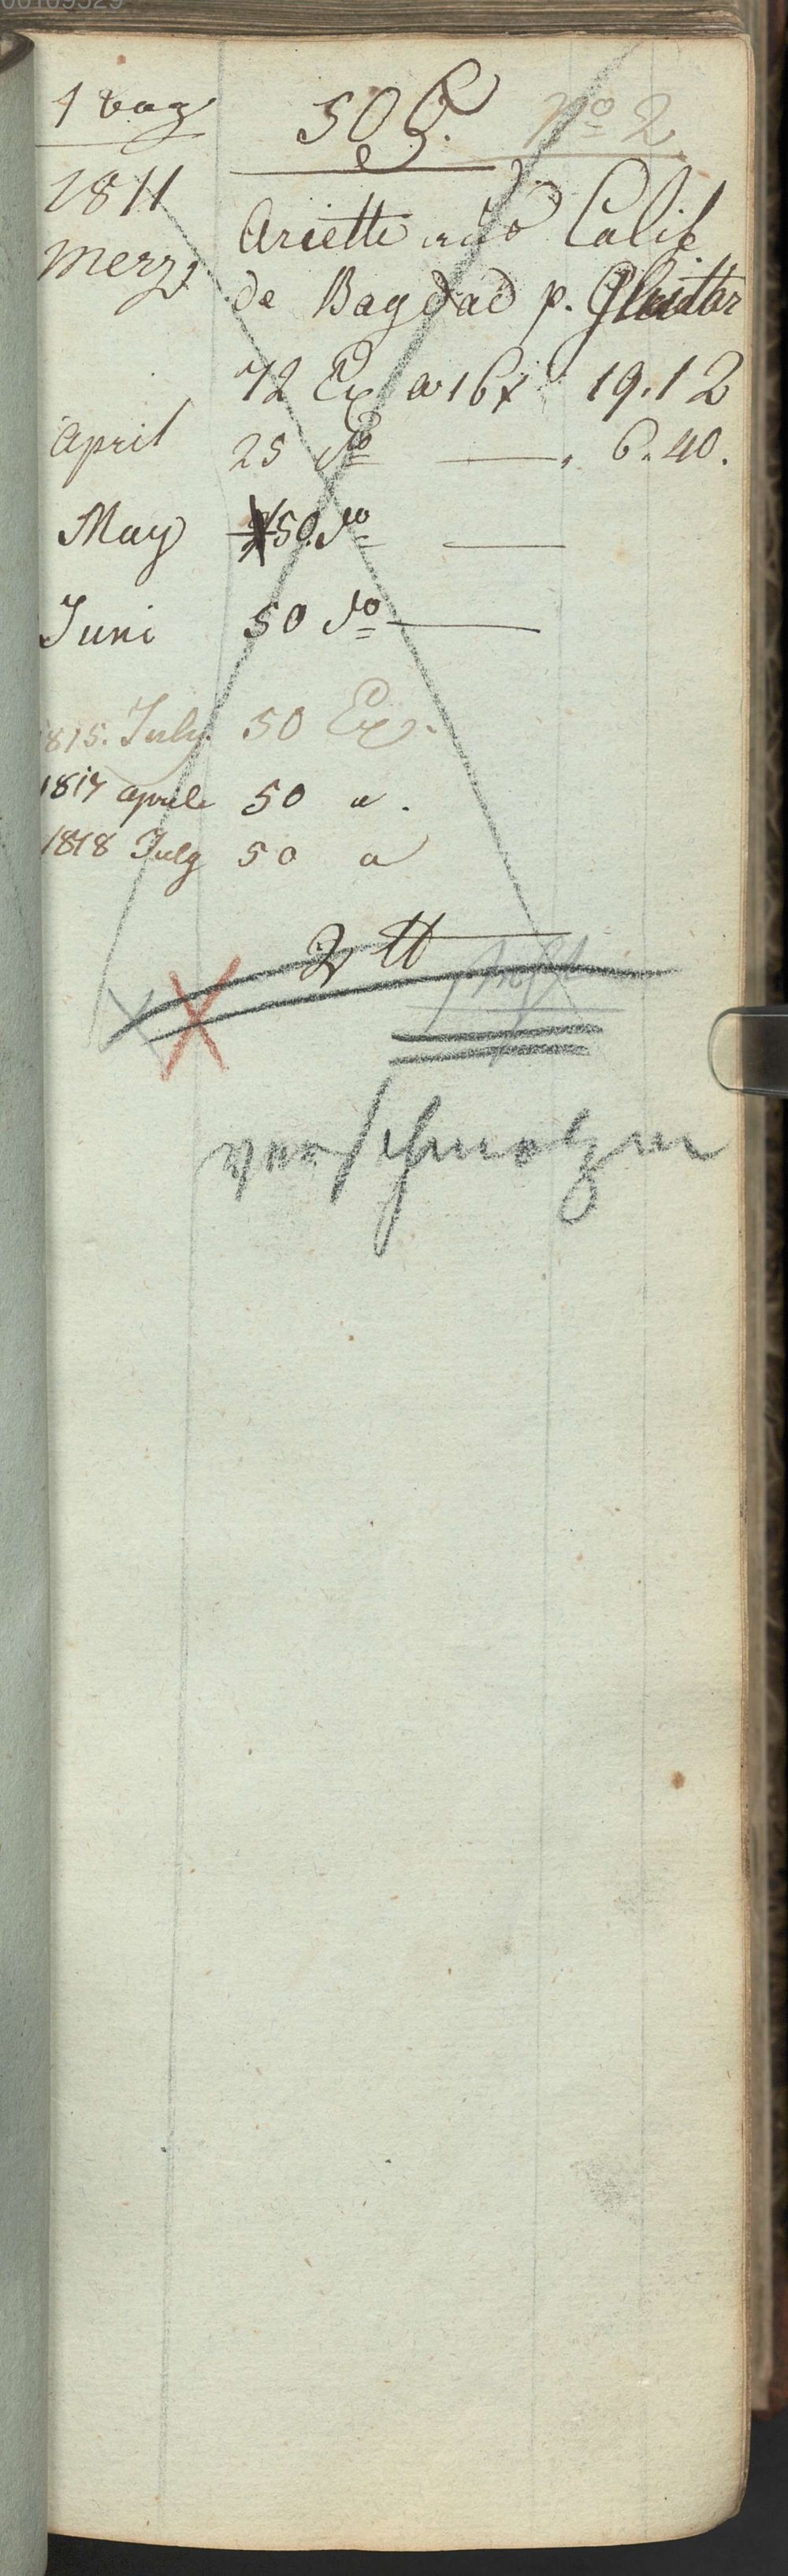 1 bag 505. No 2
1811 Ariette aus Calif
Merz de Bagdad p. Guitar
72 Ex a 16x 19.12
April 25 do — 6.40.
May 50 do —
Juni 50 do —
1815. July. 50 Ex.
1817 aprile 50 a.
1818 July 50 a
2 tt
verschmolzen